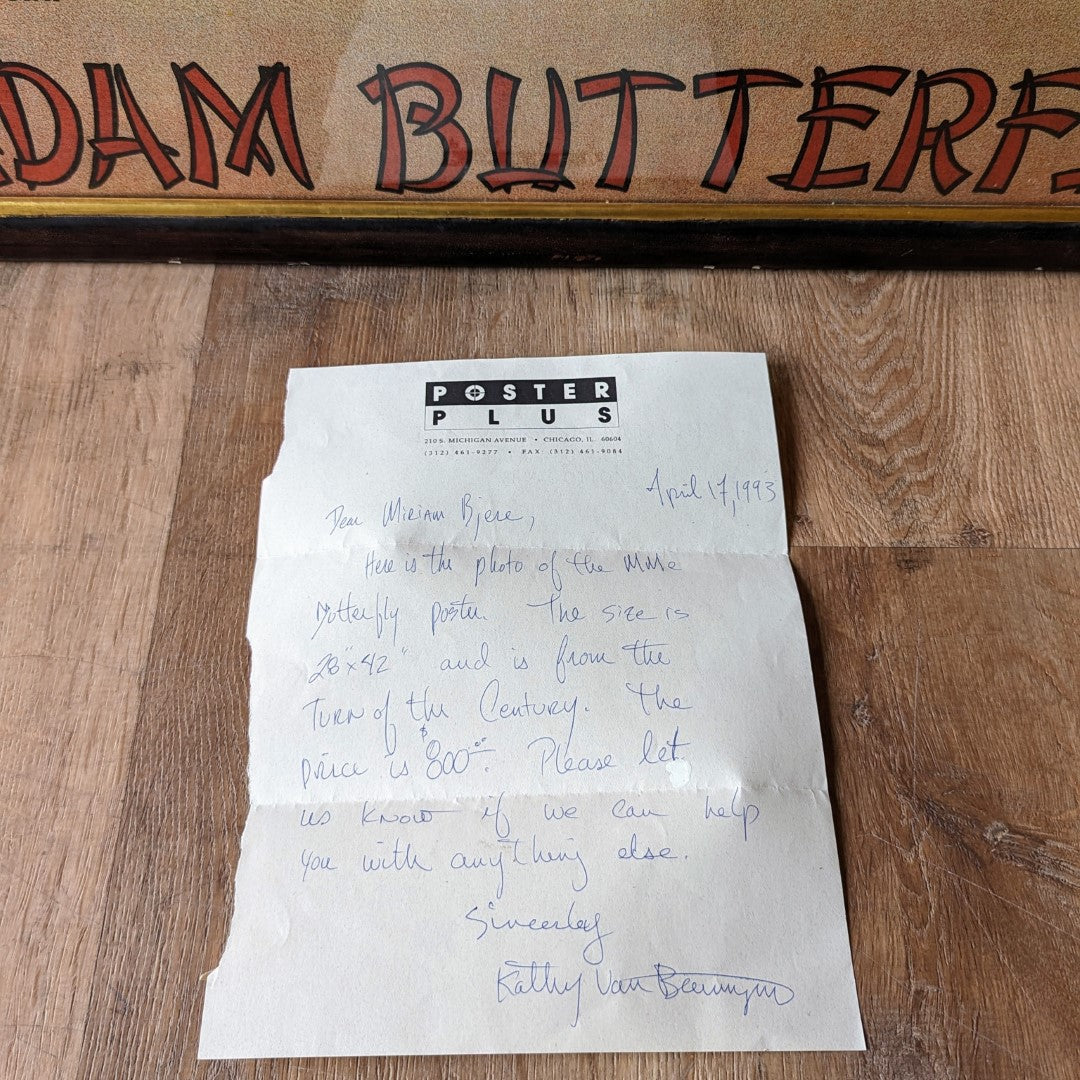 DAM BUTTERF
POSTER
PLUS
210 S. MICHIGAN AVENUE • CHICAGO, IL 60604
(312) 461-9277 • FAX (312) 461-9084
April 17, 1993
Dear Miriam Bjere,
Here is the photo of the MMe
Butterfly poster. The size is
28"x42" and is from the
Turn of the Century. The
price is $800.00. Please let
us know if we can help
you with anything else.
Sincerley
Kathy Van